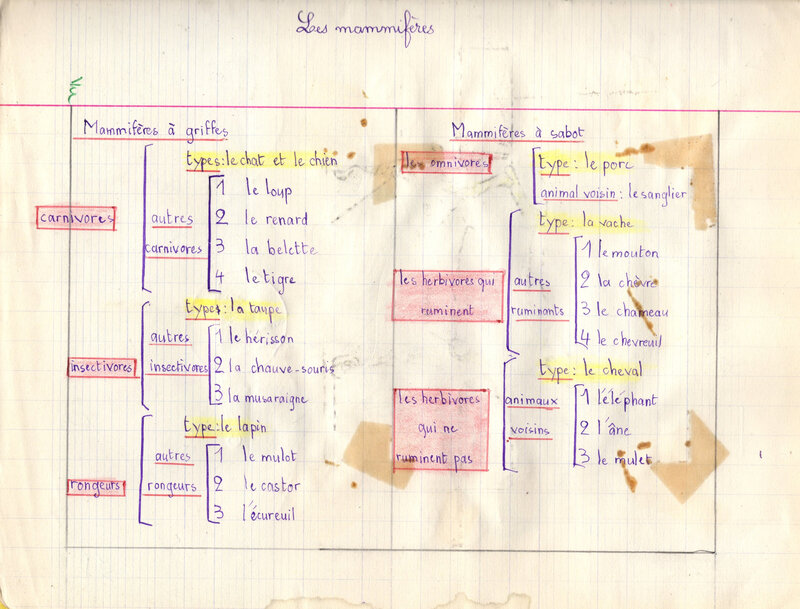 Les mammifères
Mammifères à griffes
types: le chat et le chien
carnivores
autres
carnivores
1 le loup
2 le renard
3 la belette
4 le tigre
types: la taupe
insectivores
autres
insectivores
1 le hérisson
2 la chauve-souris
3 la musaraigne
type: le lapin
rongeurs
autres
rongeurs
1 le mulot
2 le castor
3 l'écureuil
Mammifères à sabot
les omnivores
type: le porc
animal voisin: le sanglier
type: la vache
les herbivores qui
ruminent
autres
ruminants
1 le mouton
2 la chèvre
3 le chameau
4 le chevreuil
type: le cheval
les herbivores
qui ne
ruminent pas
animaux
voisins
1 l'éléphant
2 l'âne
3 le mulet